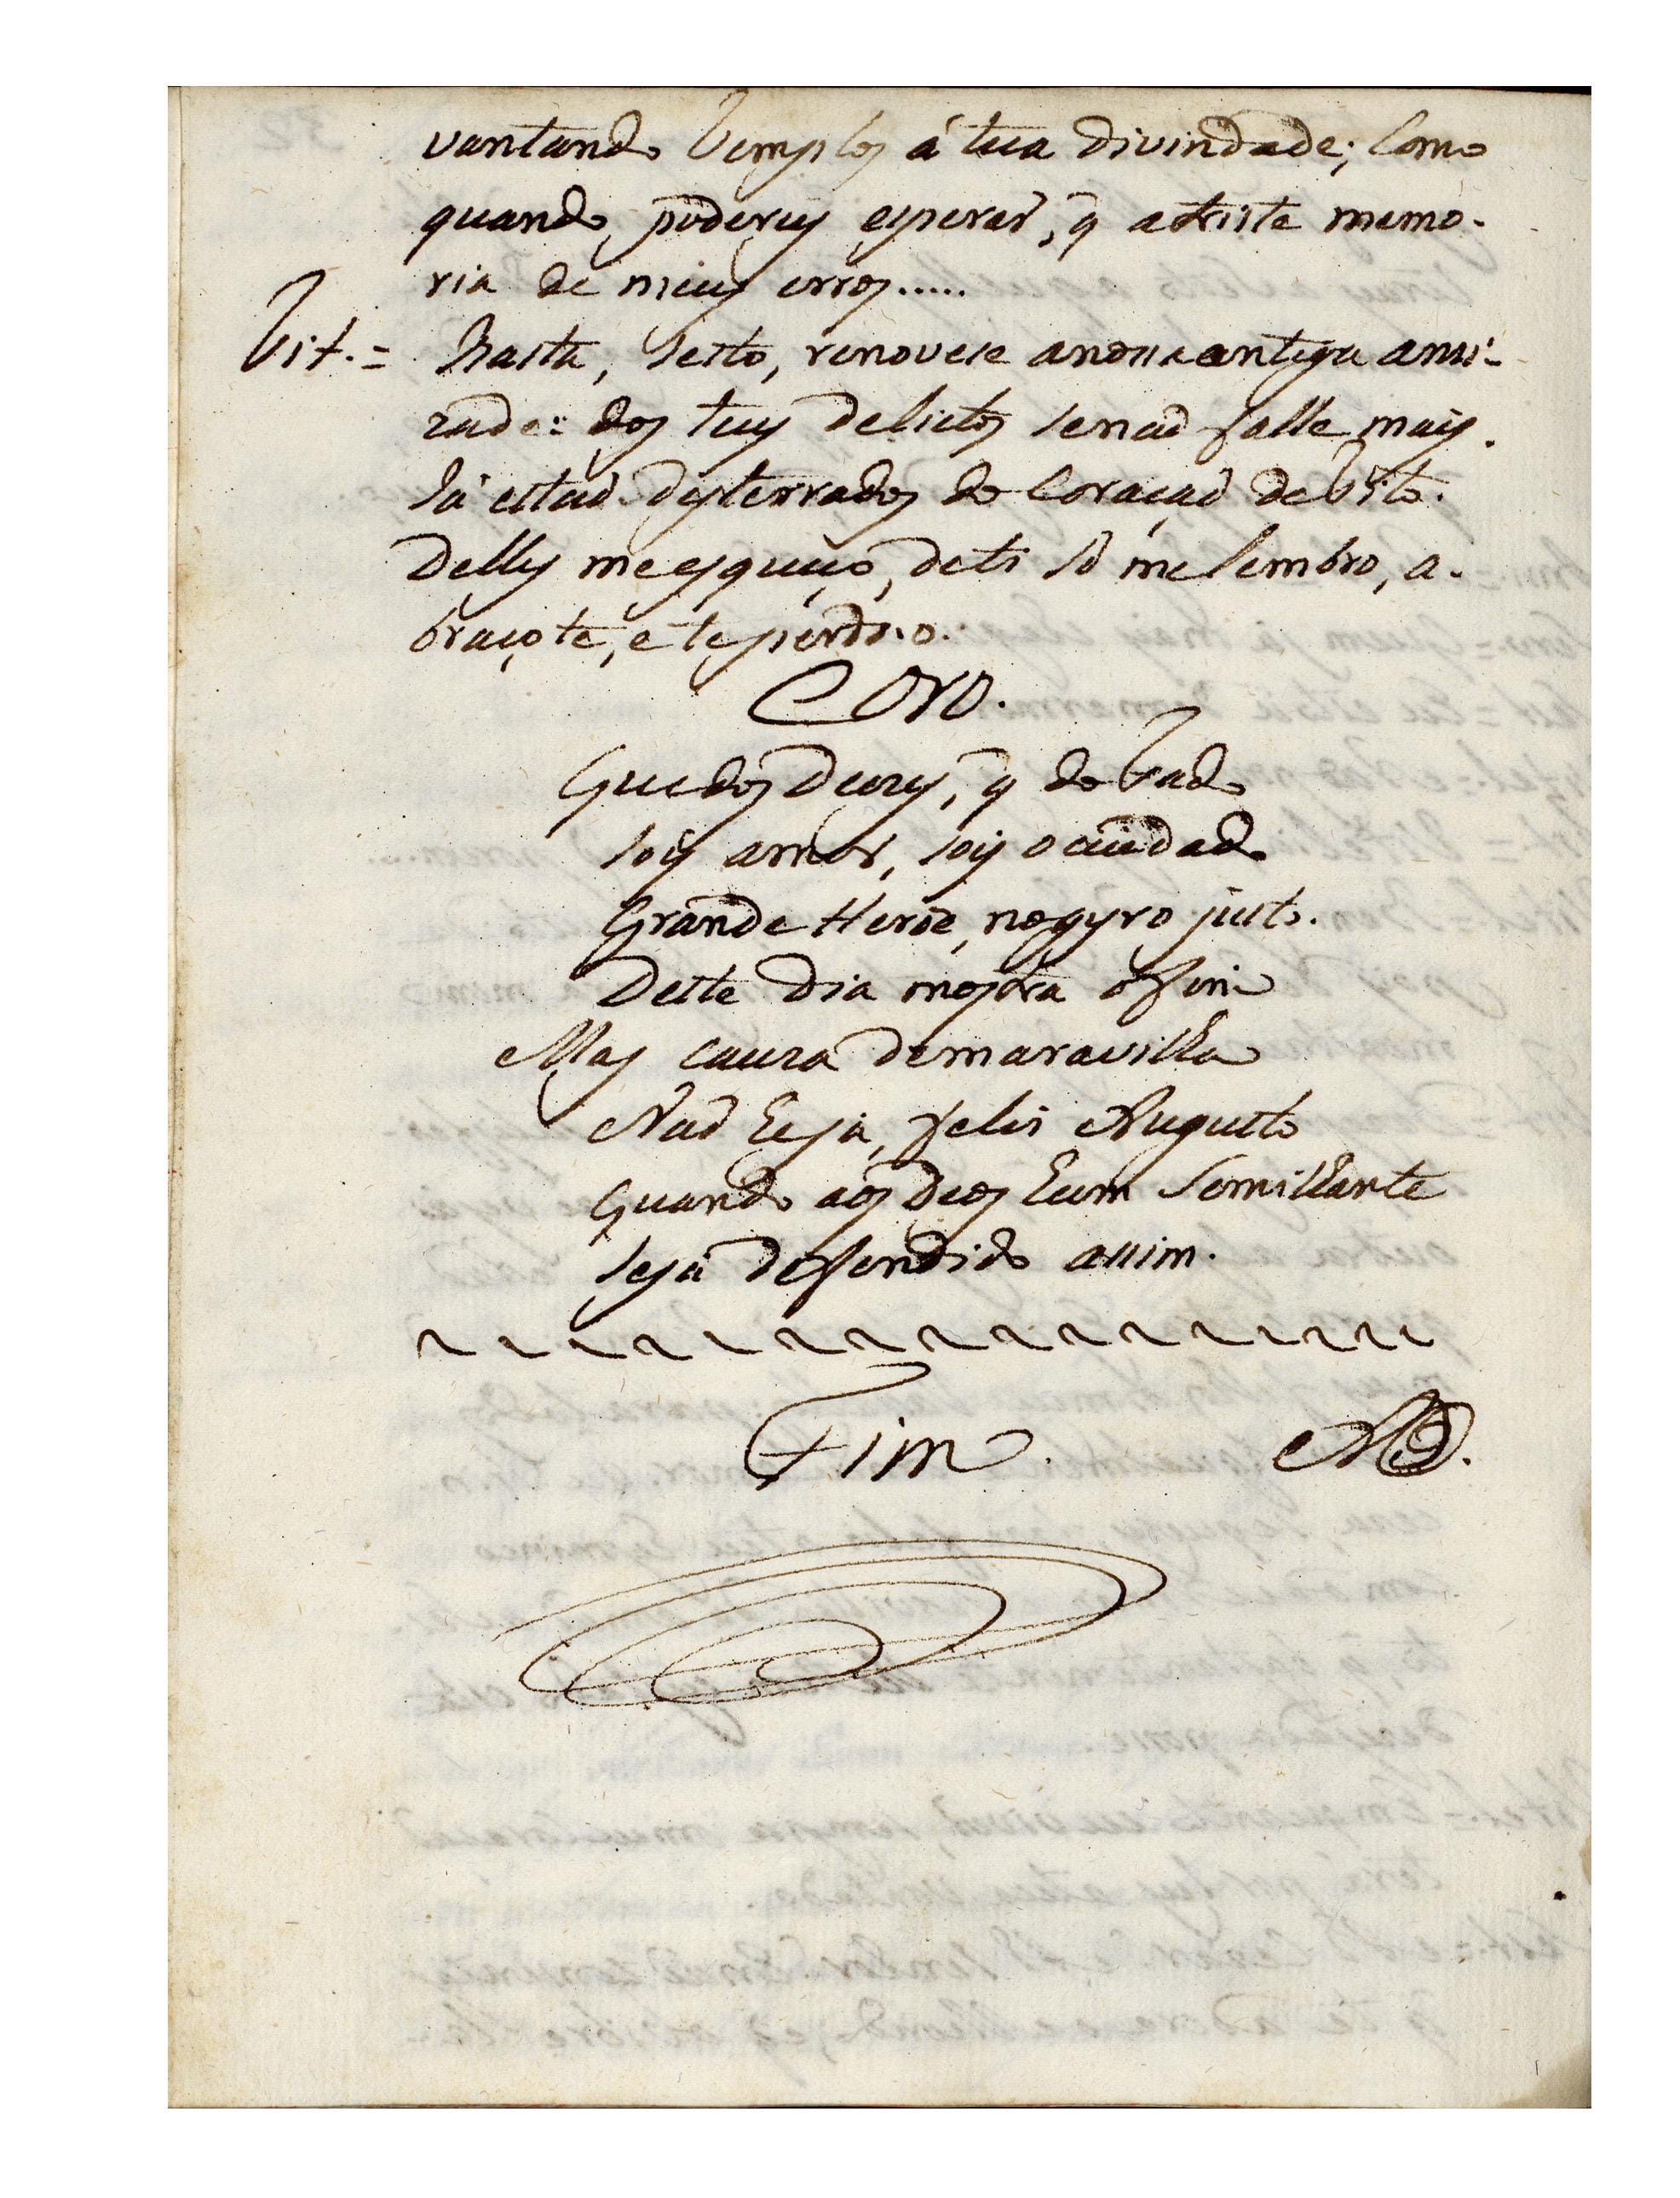 vantando Templos á tua divindade; Como
quando poderey esperar, q̃ a triste memo-
ria de meus erros.....
Tit. = Basta, Sesto, renovese anossa antiga ami-
zade: dos teus delictos senaõ falle mais.
Já estaõ desterrados do Coraçaõ de Tito.
Delles me esqueço, de ti só me lembro, a-
braçote, e te perdoo.
Coro.
Que dos Deozes, q̃ do Fado
Sois amor, sois o cuidado
Grande Heroe, no gyro justo
Deste dia mostra o fim
Mas cauza de maravilha
Naõ seja, felis Augusto
Quando aos Deos hum Semilhante
Seja deffendido assim.
Fim.